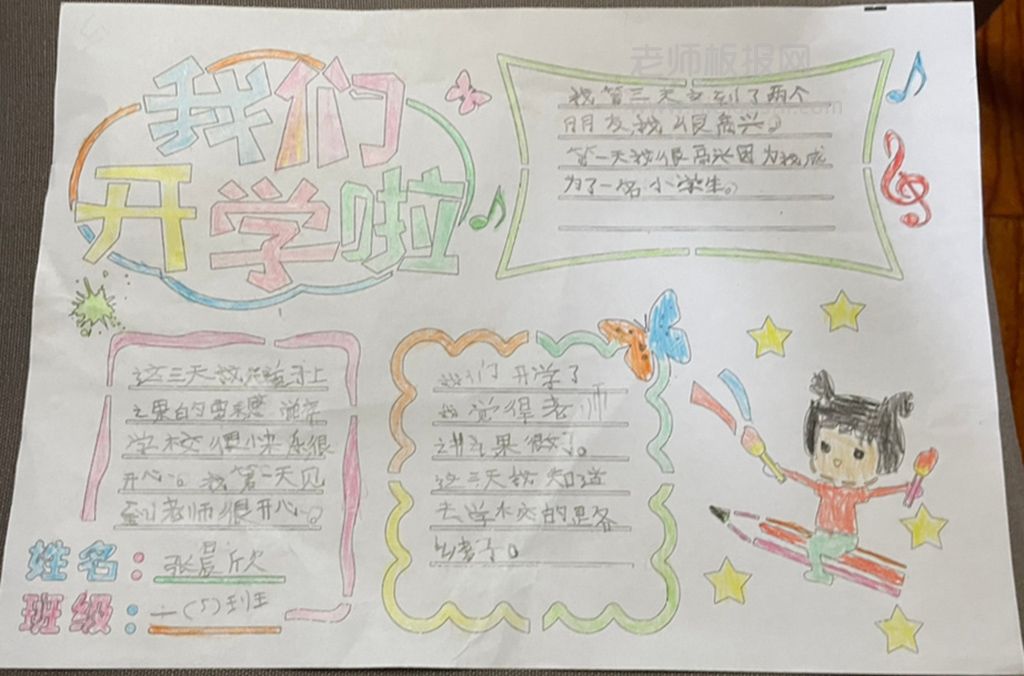 我们
开学啦
老师板报网
我第三天交到了两个
朋友我很高兴。
第一天我很高兴因为我成
为了一名小学生。
这三天我
学校很快乐很
开心。我第一天见
到老师很开心。
我们开学了
我觉得老师
讲课很好。
这三天我知道
去学校的
姓名：张晨欣
班级：一(5)班